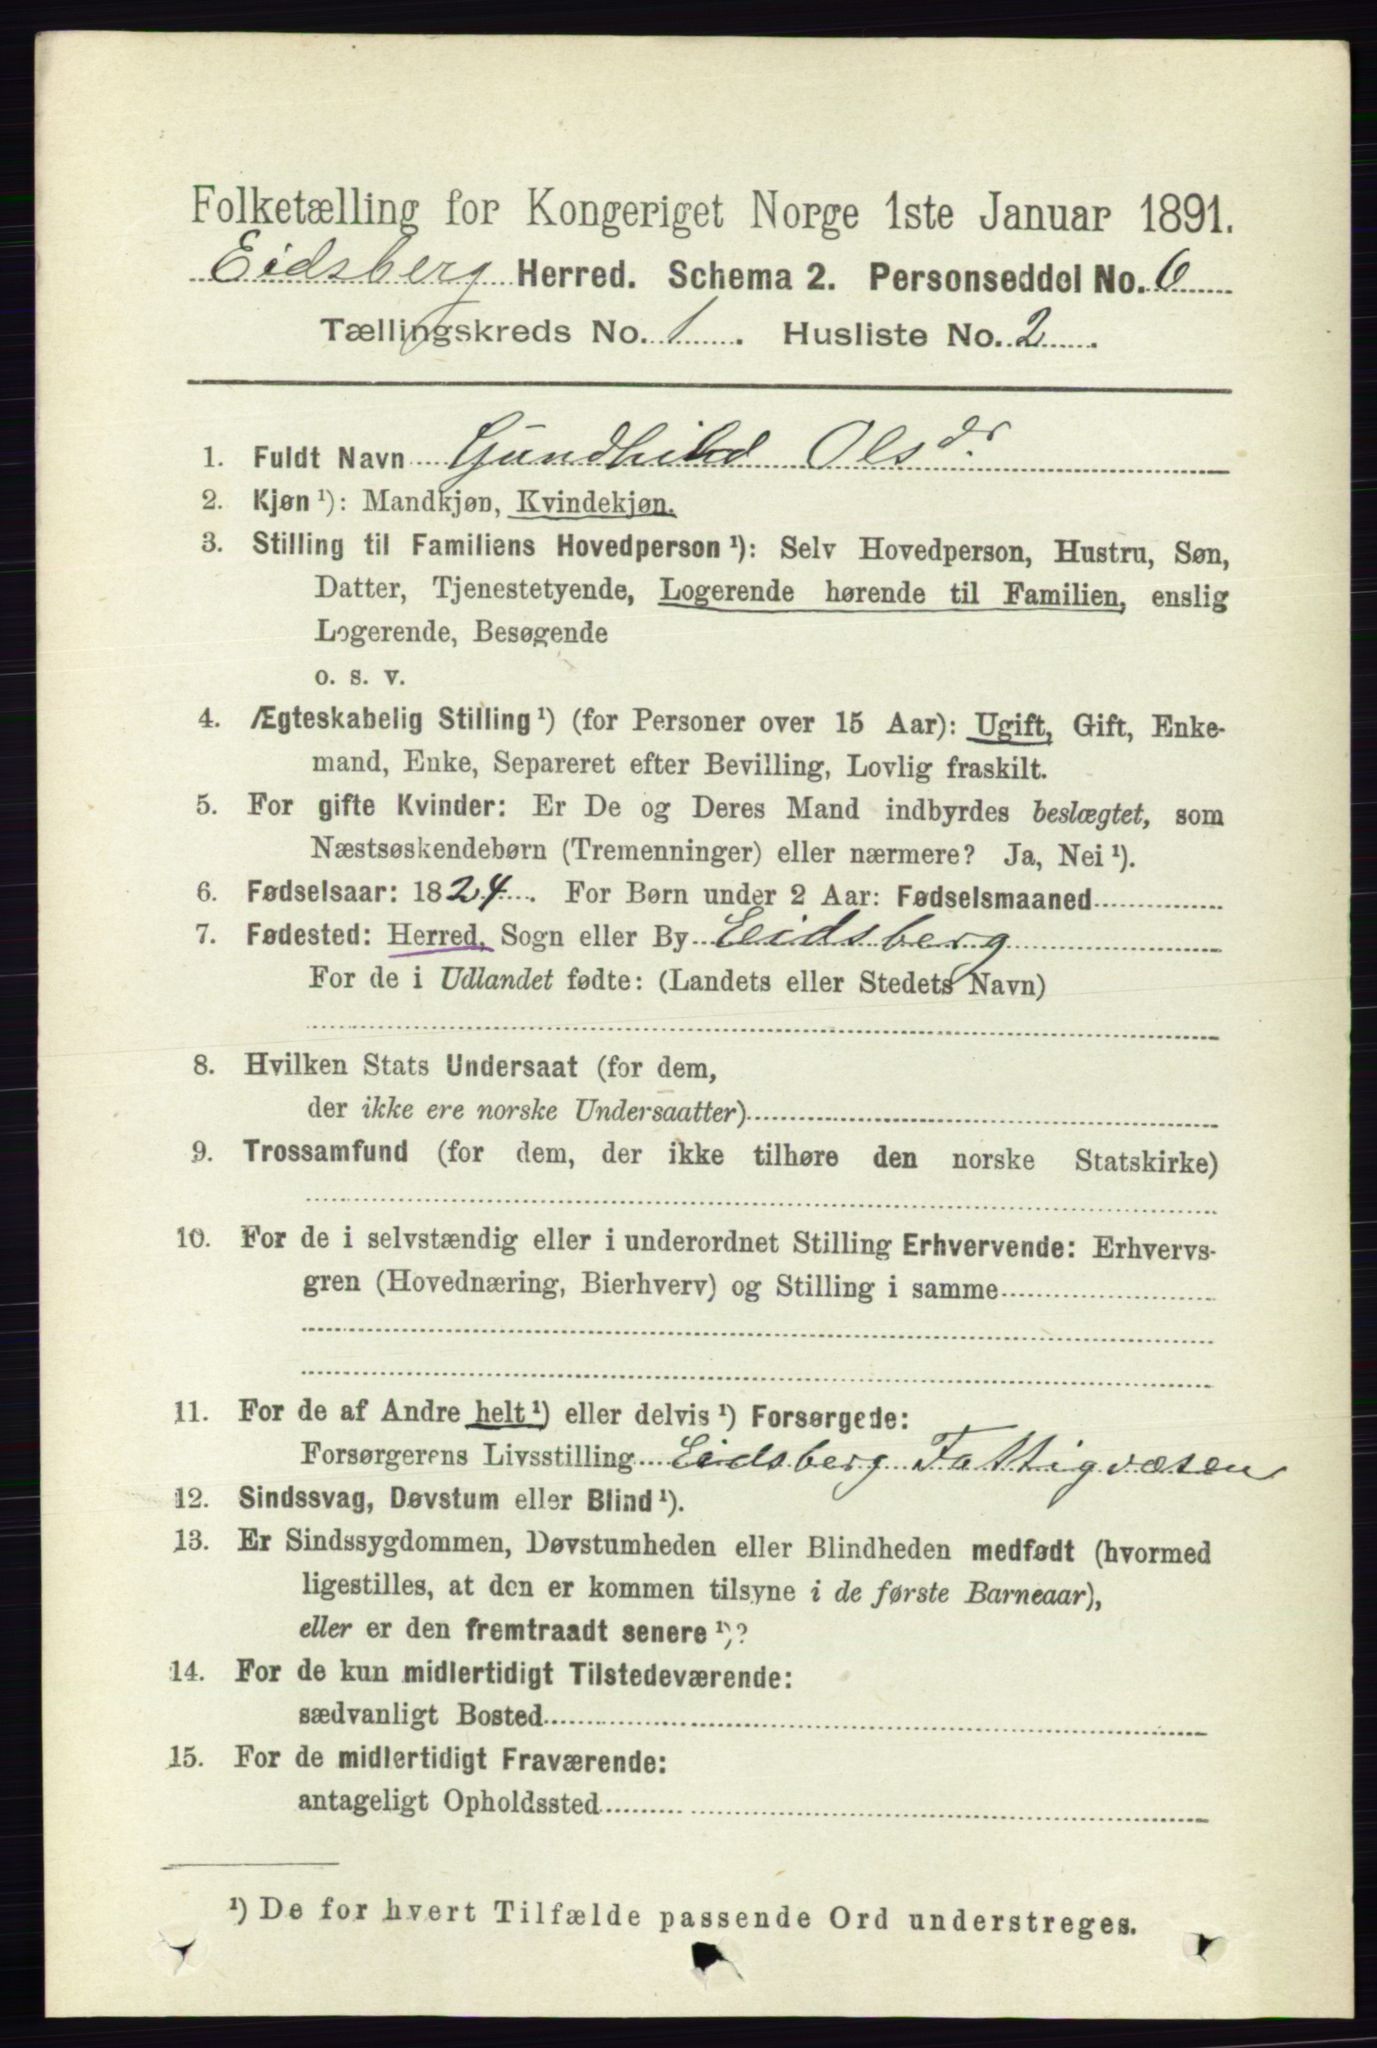 Folketælling for Kongeriget Norge 1ste Januar 1891.
Eidsberg Herred. Schema 2. Personseddel No. 6
Tællingskreds No. 1. Husliste No. 2.
1. Fuldt Navn Gundhild Olsdr.
2. Kjøn ¹): Mandkjøn, Kvindekjøn.
3. Stilling til Familiens Hovedperson ¹): Selv Hovedperson, Hustru, Søn,
Datter, Tjenestetyende, Logerende hørende til Familien, enslig
Logerende, Besøgende
o. s. v.
4. Ægteskabelig Stilling ¹) (for Personer over 15 Aar): Ugift, Gift, Enke-
mand, Enke, Separeret efter Bevilling, Lovlig fraskilt.
5. For gifte Kvinder: Er De og Deres Mand indbyrdes beslægtet, som
Næstsøskendebørn (Tremenninger) eller nærmere? Ja, Nei ¹).
6. Fødselsaar: 1824. For Børn under 2 Aar: Fødselsmaaned
7. Fødested: Herred, Sogn eller By Eidsberg
For de i Udlandet fødte: (Landets eller Stedets Navn)
8. Hvilken Stats Undersaat (for dem,
der ikke ere norske Undersaatter)
9. Trossamfund (for dem, der ikke tilhøre den norske Statskirke)
10. For de i selvstændig eller i underordnet Stilling Erhvervende: Erhvervs-
gren (Hovednæring, Bierhverv) og Stilling i samme
11. For de af Andre helt ¹) eller delvis ¹) Forsørgede:
Forsørgerens Livsstilling Eidsberg Fattigvæsen
12. Sindssvag, Døvstum eller Blind ¹).
13. Er Sindssygdommen, Døvstumheden eller Blindheden medfødt (hvormed
ligestilles, at den er kommen tilsyne i de første Barneaar),
eller er den fremtraadt senere ¹)?
14. For de kun midlertidigt Tilstedeværende:
sædvanligt Bosted
15. For de midlertidigt Fraværende:
antageligt Opholdssted
¹) De for hvert Tilfælde passende Ord understreges.